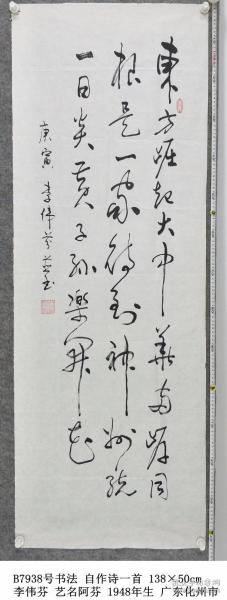 東方崛起大中華両岸同
根是一家待到神州統
一日炎黄子孫樂開花
庚寅 李偉芬書
B7938号书法 自作诗一首 138×50cm
李伟芬 艺名阿芬 1948年生 广东化州市